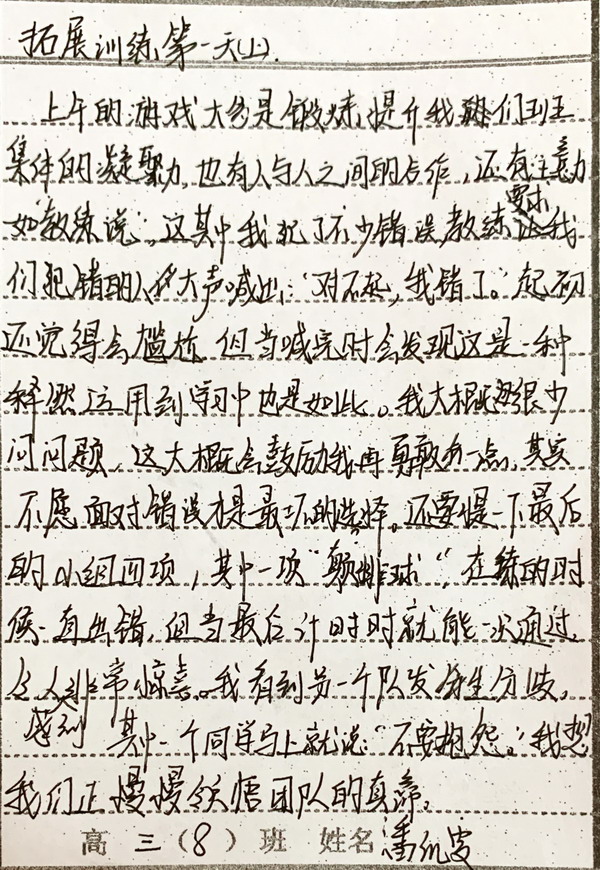 拓展训练第一天(上).
上午的游戏大多是锻炼,提升我们班
集体的凝聚力,也有人与人之间的合作,还有注意力
如“教练说”,这其中我犯了不少错误,教练要求我
们犯错的人大声喊出:“对不起,我错了。”起初
还觉得会尴尬,但当喊完时会发现这是一种
释然,运用到学习中也是如此。我大概很少
问问题,这大概会鼓励我再勇敢一点,其实
不愿面对错误才是最坏的选择。还要提一下最后
的小组四项,其中一项“颠排球”,在练的时
候一直出错,但当最后计时时就能一次通过
令人感到非常惊喜。我看到另一个队发生分歧,
其中一个同学马上就说:“不要抱怨。”我想
我们正慢慢领悟团队的真谛。
高三(8)班 姓名 潘